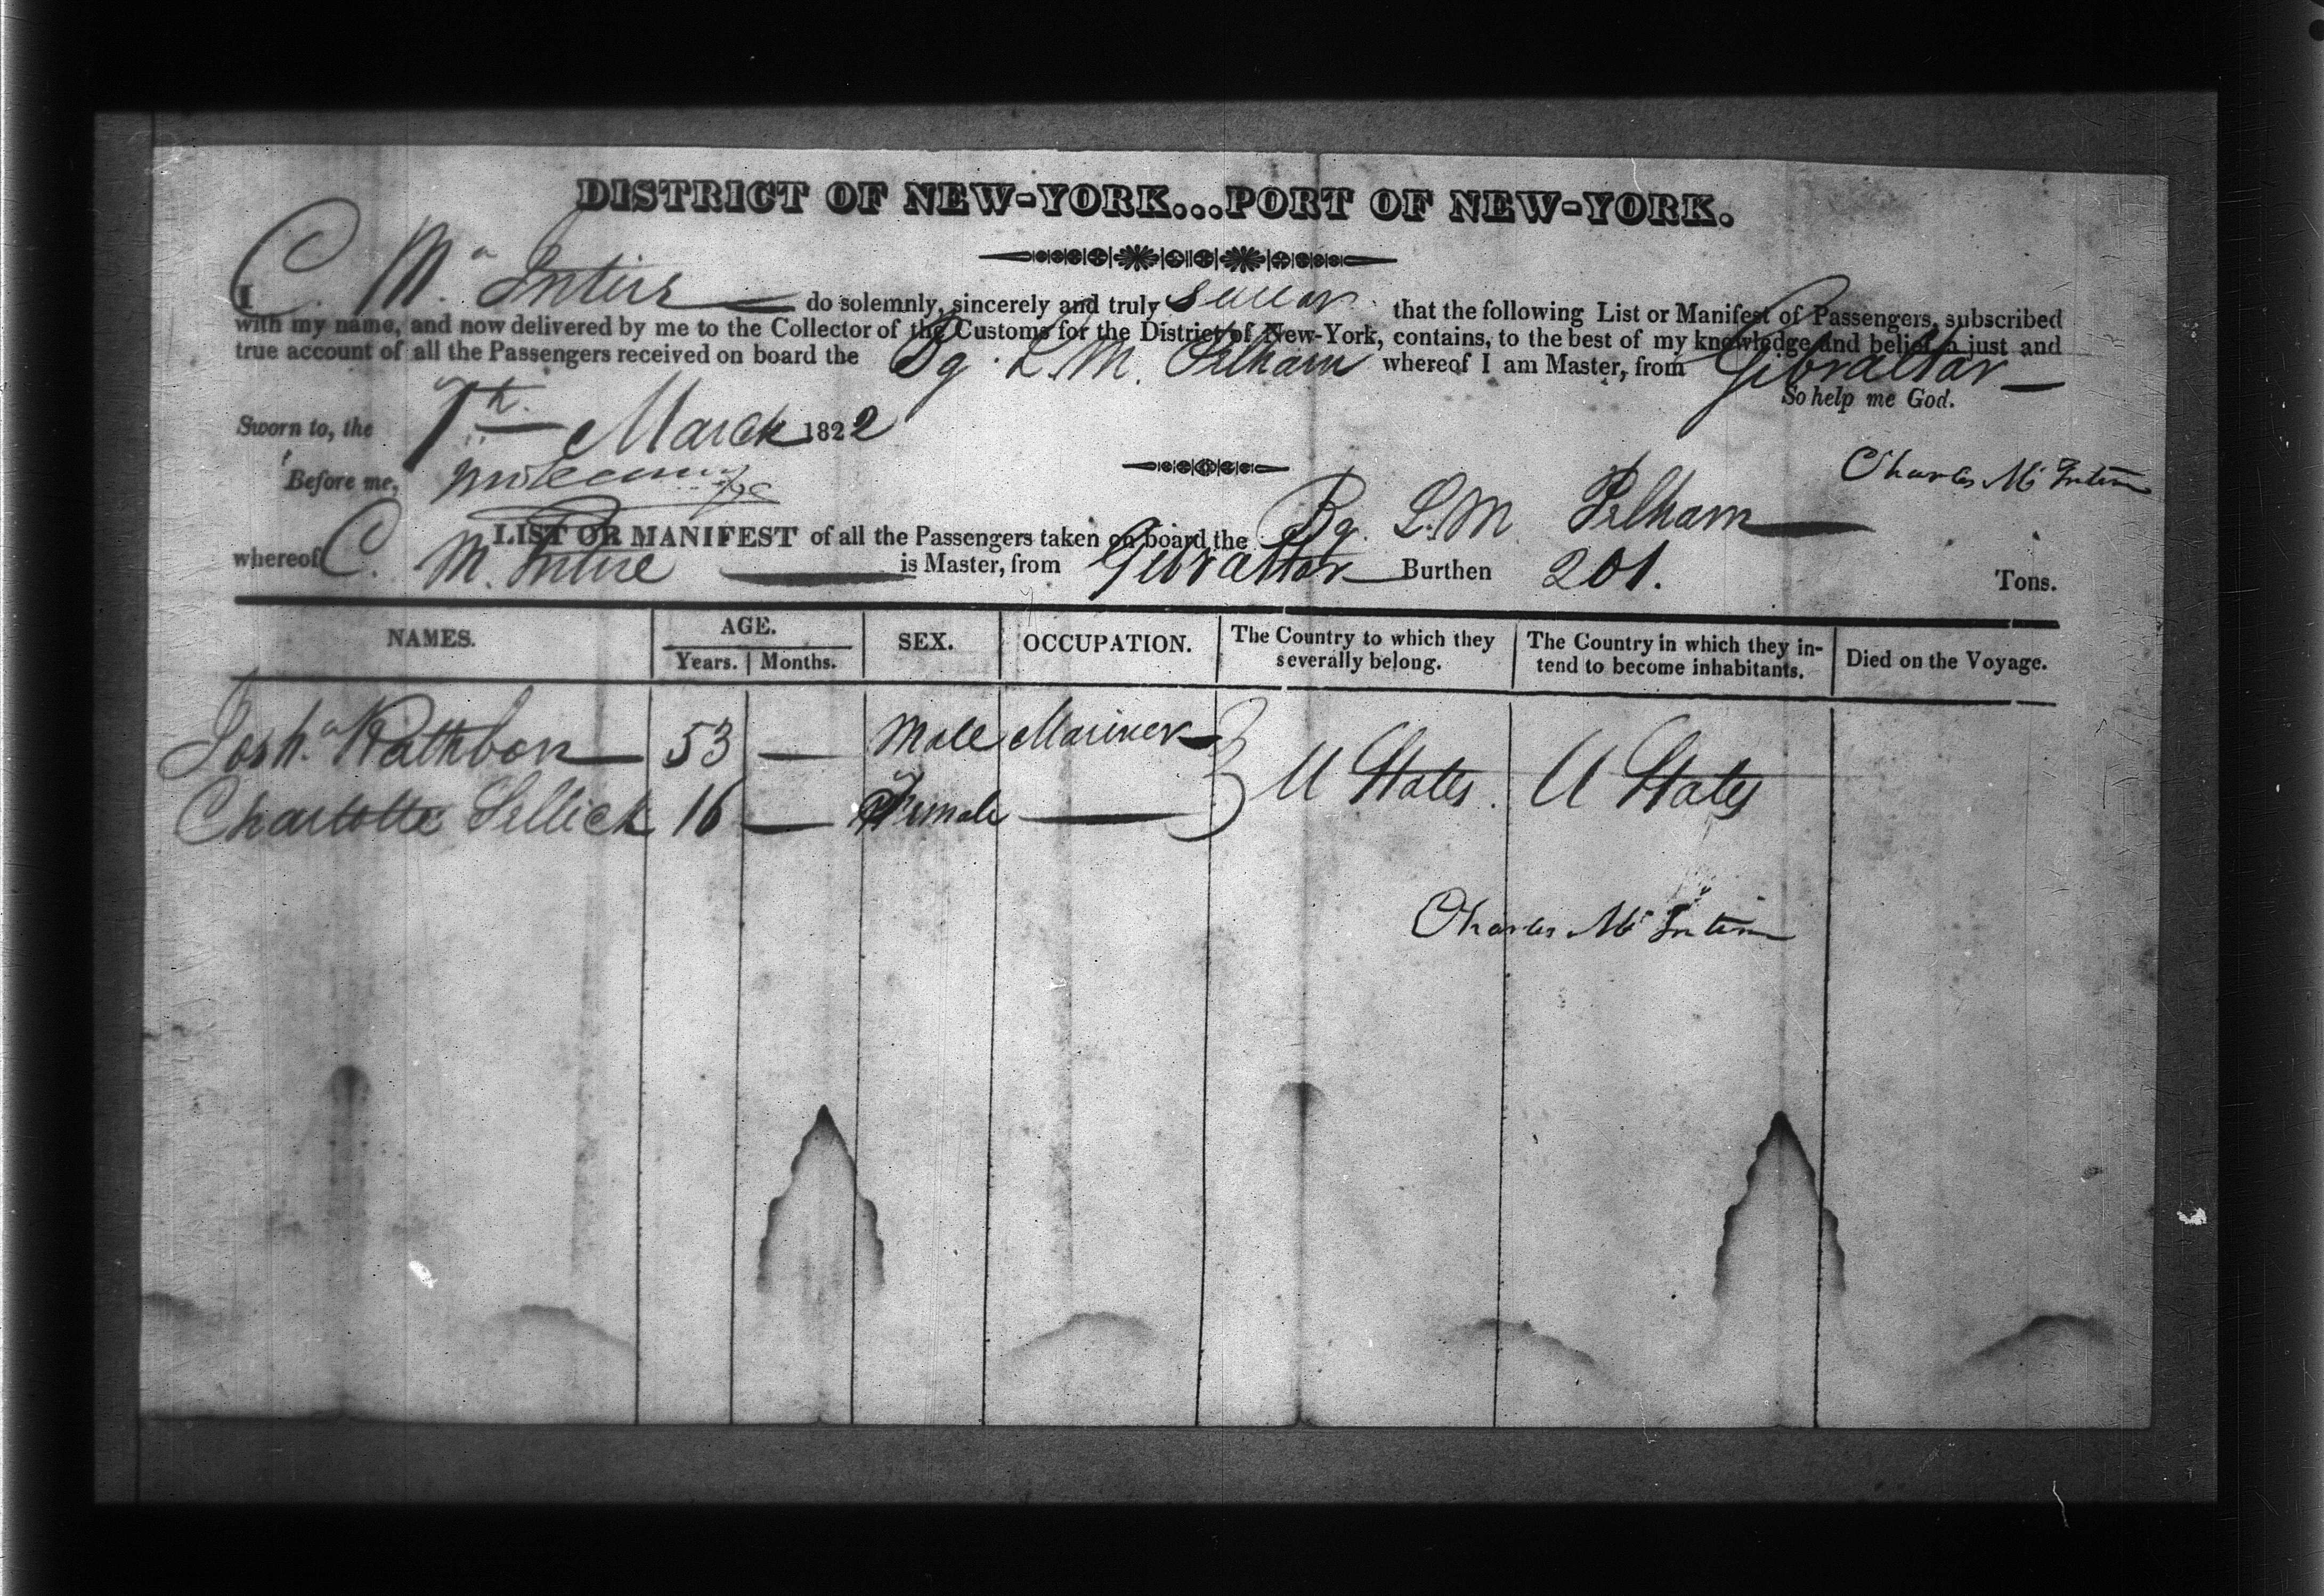 DISTRICT OF NEW-YORK...PORT OF NEW-YORK.
I C. Mc Intire do solemnly, sincerely and truly swear that the following List or Manifest of Passengers, subscribed
with my name, and now delivered by me to the Collector of the Customs for the District of New-York, contains, to the best of my knowledge and belief a just and
true account of all the Passengers received on board the Bg. L. M. Pelham whereof I am Master, from Gibraltar
So help me God.
Sworn to, the 7th March 1822
Charles Mc Intire
Before me,
LIST OR MANIFEST of all the Passengers taken on board the Bg. L. M. Pelham
whereof C. Mc Intire is Master, from Gibraltar Burthen 201. Tons.
NAMES. AGE. Years. Months. SEX. OCCUPATION. The Country to which they severally belong. The Country in which they intend to become inhabitants. Died on the Voyage.
Josha Rathbon 53 — Male Mariner
U States. U States
Charlotte Sellick 16 — Female —
Charles Mc Intire